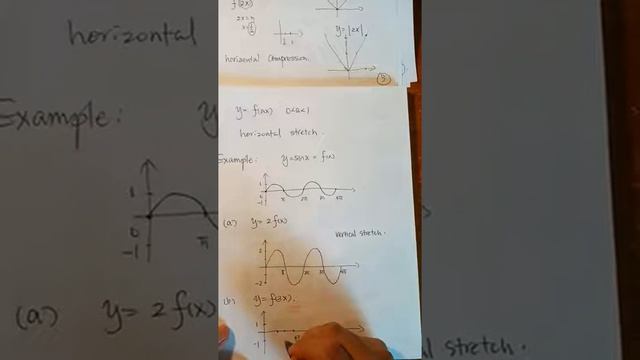 f(2x)
2x=
y=|2x|
horizontal compression.
5
y= f(ax) 0<a<1
horizontal stretch.
Example: y=sinx = f(x)
1
0
-1
π 2π 3π 4π
(a) y= 2f(x)
vertical stretch.
2
-2
π 2π 3π 4π
(b) y= f(3x).
1
-1
horizontal
Example: y
1
0
-1
π
(a) y= 2 f(x)
l stretch.